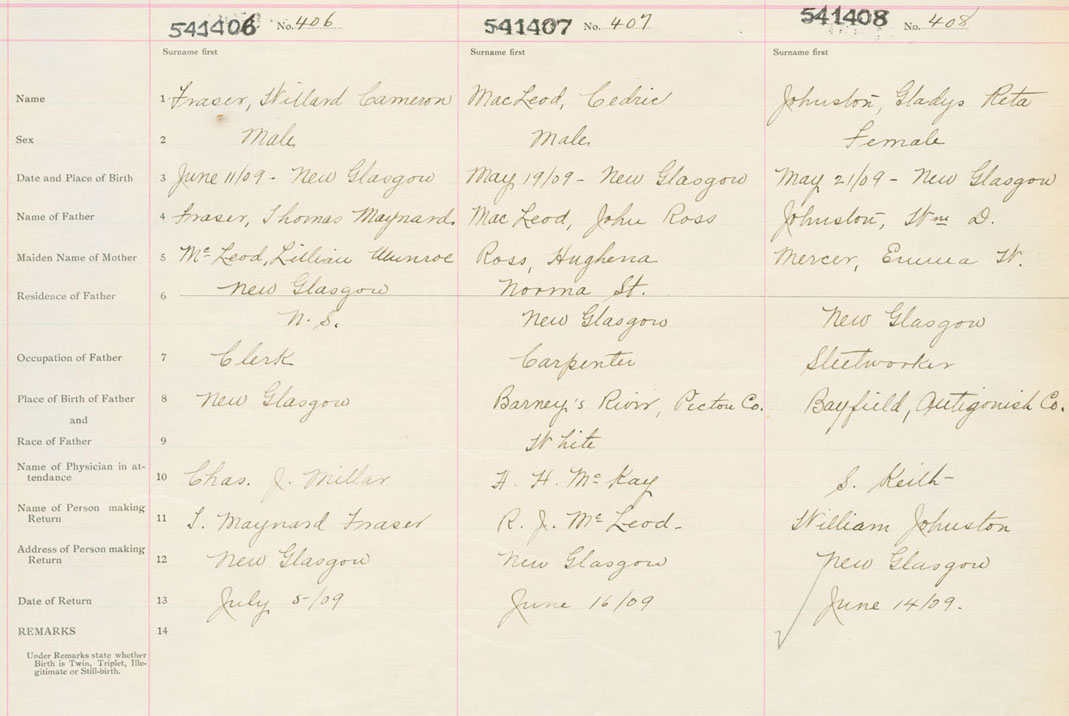 541406 No. 406 541407 No. 407 541408 No. 408
Surname first Surname first Surname first
Name 1 Fraser, Willard Cameron MacLeod, Cedric Johnston, Gladys Reta
Sex 2 Male Male Female
Date and Place of Birth 3 June 11/09 - New Glasgow May 19/09 - New Glasgow May 21/09 - New Glasgow
Name of Father 4 Fraser, Thomas Maynard. MacLeod, John Ross Johnston, Wm D.
Maiden Name of Mother 5 McLeod, Lillian Munroe Ross, Hughena Mercer, Emma W.
Residence of Father 6 New Glasgow Norma St.
N.S. New Glasgow New Glasgow
Occupation of Father 7 Clerk Carpenter Steelworker
Place of Birth of Father 8 New Glasgow Barney's River, Pictou Co. Bayfield, Antigonish Co.
and
Race of Father 9 White
Name of Physician in at-
tendance 10 Chas. J. Millar H. H. McKay S. Keith -
Name of Person making
Return 11 T. Maynard Fraser R. J. McLeod - William Johnston
Address of Person making
Return 12 New Glasgow New Glasgow New Glasgow
Date of Return 13 July 5/09 June 16/09 June 14/09.
REMARKS 14
Under Remarks state whether
Birth is Twin, Triplet, Ille-
gitimate or Still-birth.